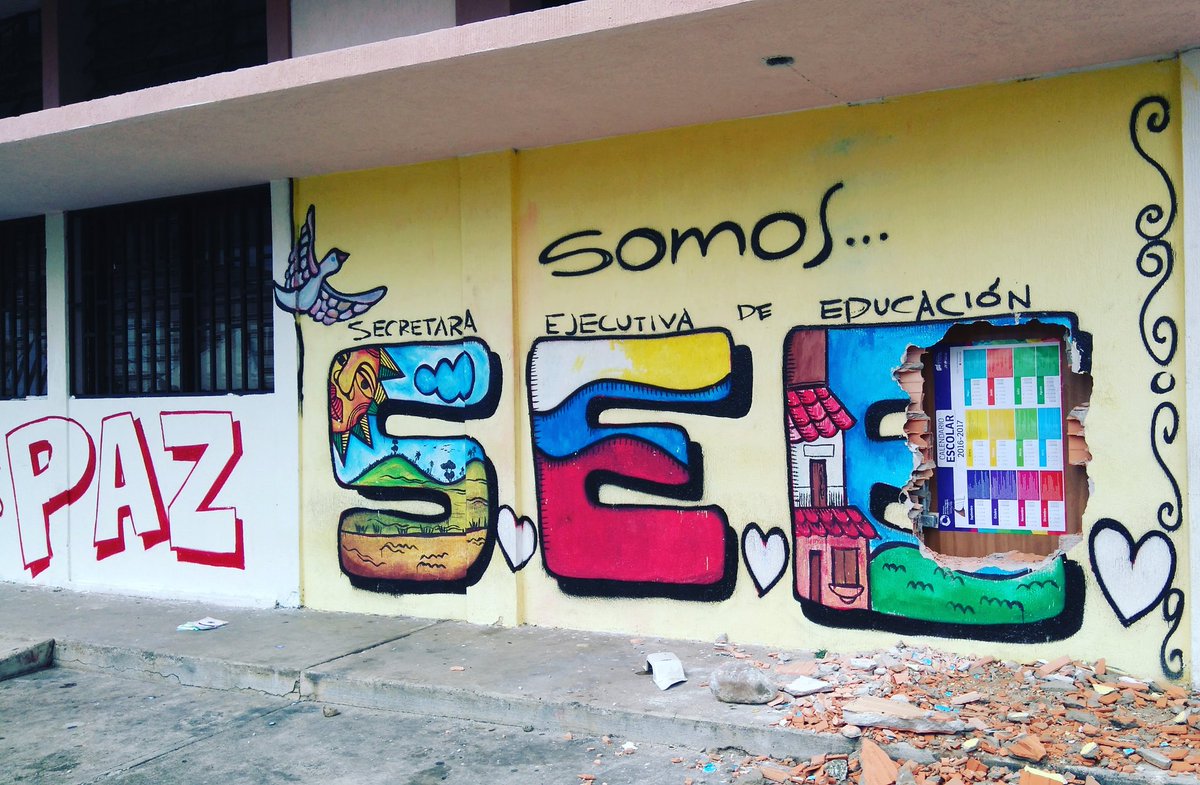 PAZ
SOMOS...
SECRETARA EJECUTIVA DE EDUCACIÓN
S.E.E
CALENDARIO
ESCOLAR
2016-2017